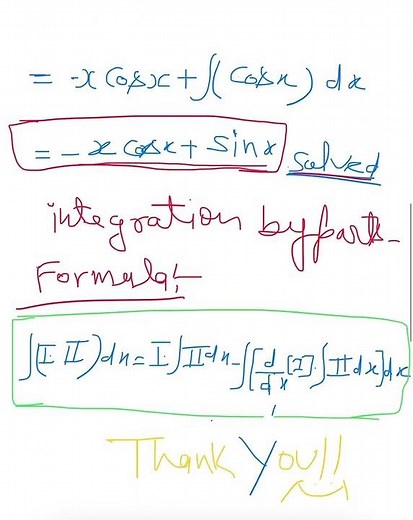 = -x Cosx + ∫(Cosx) dx
= - x cosx + sinx solved
integration by parts-
Formula:-
∫(I. II)dx = I.∫II dx - ∫[d/dx [I]. ∫II dx] dx
Thank You!!